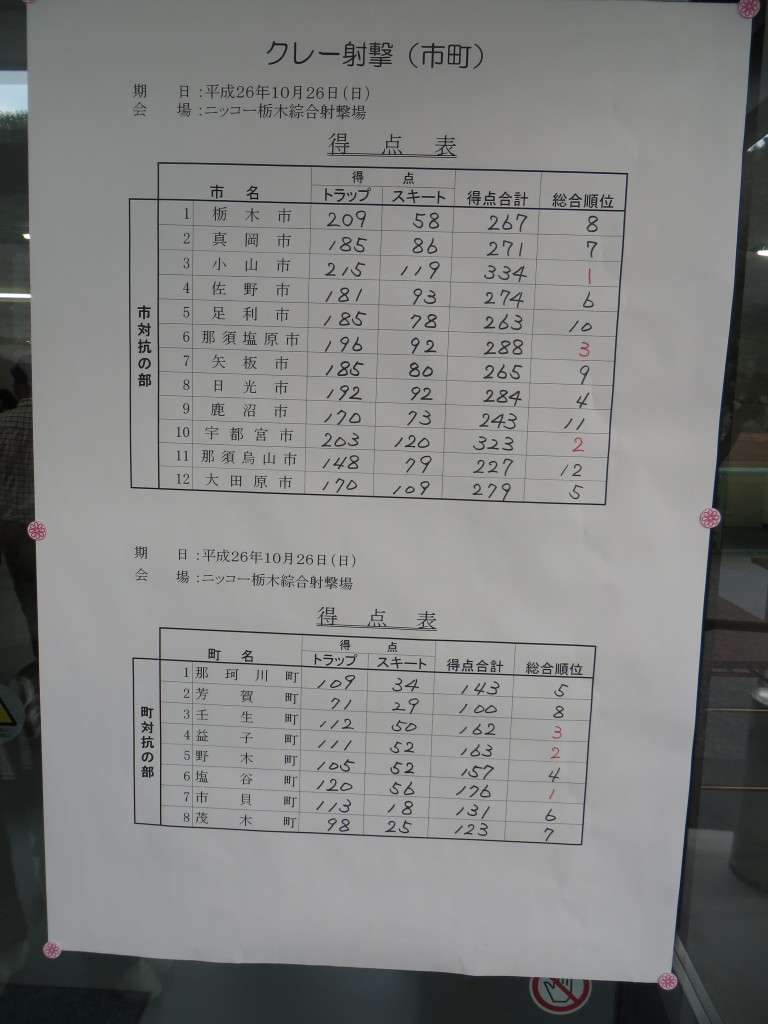 クレー射撃（市町）
期　日：平成26年10月26日（日）
会　場：ニッコー栃木綜合射撃場
得　点　表
得　点
市　名 トラップ スキート 得点合計 総合順位
市対抗の部
1 栃木市 209 58 267 8
2 真岡市 185 86 271 7
3 小山市 215 119 334 1
4 佐野市 181 93 274 6
5 足利市 185 78 263 10
6 那須塩原市 196 92 288 3
7 矢板市 185 80 265 9
8 日光市 192 92 284 4
9 鹿沼市 170 73 243 11
10 宇都宮市 203 120 323 2
11 那須烏山市 148 79 227 12
12 大田原市 170 109 279 5
期　日：平成26年10月26日（日）
会　場：ニッコー栃木綜合射撃場
得　点　表
得　点
町　名 トラップ スキート 得点合計 総合順位
町対抗の部
1 那珂川町 109 34 143 5
2 芳賀町 71 29 100 8
3 壬生町 112 50 162 3
4 益子町 111 52 163 2
5 野木町 105 52 157 4
6 塩谷町 120 56 176 1
7 市貝町 113 18 131 6
8 茂木町 98 25 123 7